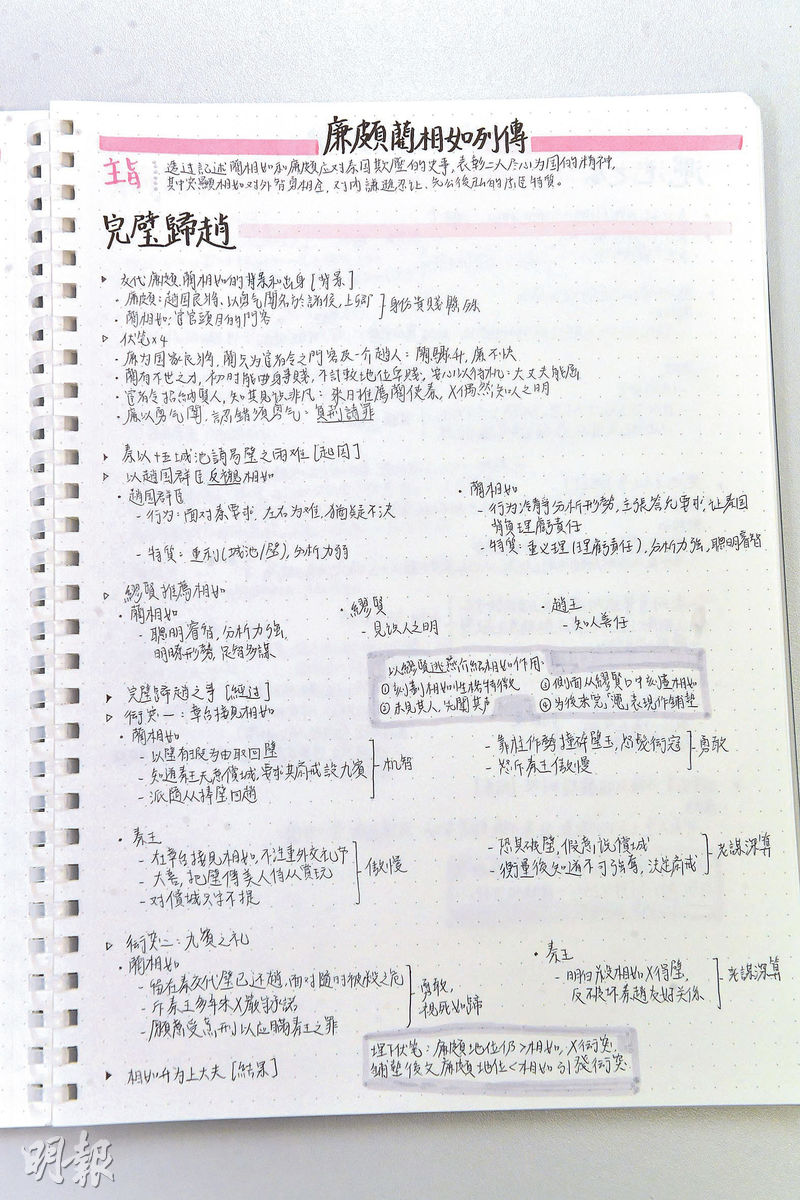 廉頗藺相如列傳
主旨
透过記述藺相如和廉頗应对秦国欺壓的史事,表彰二人尽心为国的精神,
其中突顯相如对外智勇相全,对内謙遜忍让、先公後私的性格特質。
完璧歸趙
▷ 交代廉頗、藺相如的背景和出身[背景]
· 廉頗:趙国良將,以勇气聞名於諸侯,上卿
· 藺相如:宦官頭目的門客
身份貴賤懸殊
▷ 伏笔×4
· 廉为国家良將,藺只为宦者令之門客及一介趙人:藺驟升,廉不快
· 藺有不世之力,初时能曲身事賤,不計較地位卑賤,安心以待机:大丈夫能屈
· 宦者令招納賢人,知其見识非凡:來日推薦藺使秦,X偶然知人之明
· 廉以勇气聞,認錯須勇气:負荊請罪
▶ 秦以十五城池請易璧之两难[起因]
▷ 以趙国群臣反襯相如
· 趙国群臣
- 行为:面对秦要求,左右为难,猶疑不决
- 特質:重利(城池/璧),分析力弱
· 藺相如
- 行为冷靜分析形勢,主張答允要求,让秦国
背負理虧責任
- 特質:重义理(理虧責任),分析力強,聰明睿智
▷ 繆賢推薦相如
· 藺相如
- 聰明睿智,分析力強,
明暸形勢,足智多謀
· 繆賢
- 見识人之明
· 趙王
- 知人善任
以繆賢逃燕介紹相如作用:
① 刻劃相如性格特徵
② 未見其人,先聞其声
③ 側面从繆賢口中刻畫相如
④ 为後來完「璧」表現作鋪墊
▶ 完璧歸趙之事[經过]
▷ 衝突一:章台接見相如
· 藺相如
- 以璧有瑕为由取回璧
- 知道秦王无意償城,要求其齋戒設九賓
- 派随从持璧回趙
机智
- 靠柱作勢撞碎璧玉,怒髮衝冠
- 怒斥秦王傲慢
勇敢
· 秦王
- 在章台接見相如,不注重外交礼节
- 大喜,把璧傳美人侍从賞玩
- 对償城只字不提
傲慢
- 恐其破璧,假意説償城
- 衡量後知道不可強奪,決定齋戒
老謀深算
▷ 衝突二:九賓之礼
· 藺相如
- 向秦交代璧已还趙,面对随时被殺之危
- 斥秦王多年來X嚴守承諾
- 願意受烹刑以应瞞秦王之罪
勇敢,
視死如歸
· 秦王
- 明白殺相如X得璧,
反破坏秦趙友好关係
老謀深算
▶ 相如升为上大夫[結果]
埋下伏笔:廉頗地位仍>相如,X衝突.
鋪墊後文廉頗地位<相如引發衝突.
明報